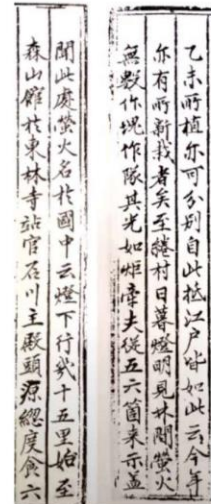 乙未所植亦可分別自此抵江戶皆如此云今年
亦有所新栽者矣至綣村日暮燈明見林間螢火
無數作塊作隊其光如炬牽夫從五六箇來示盖
聞此處螢火名於國中云燈下行貳十五里始至
森山館於東林寺站官石川主殿頭源總慶食六